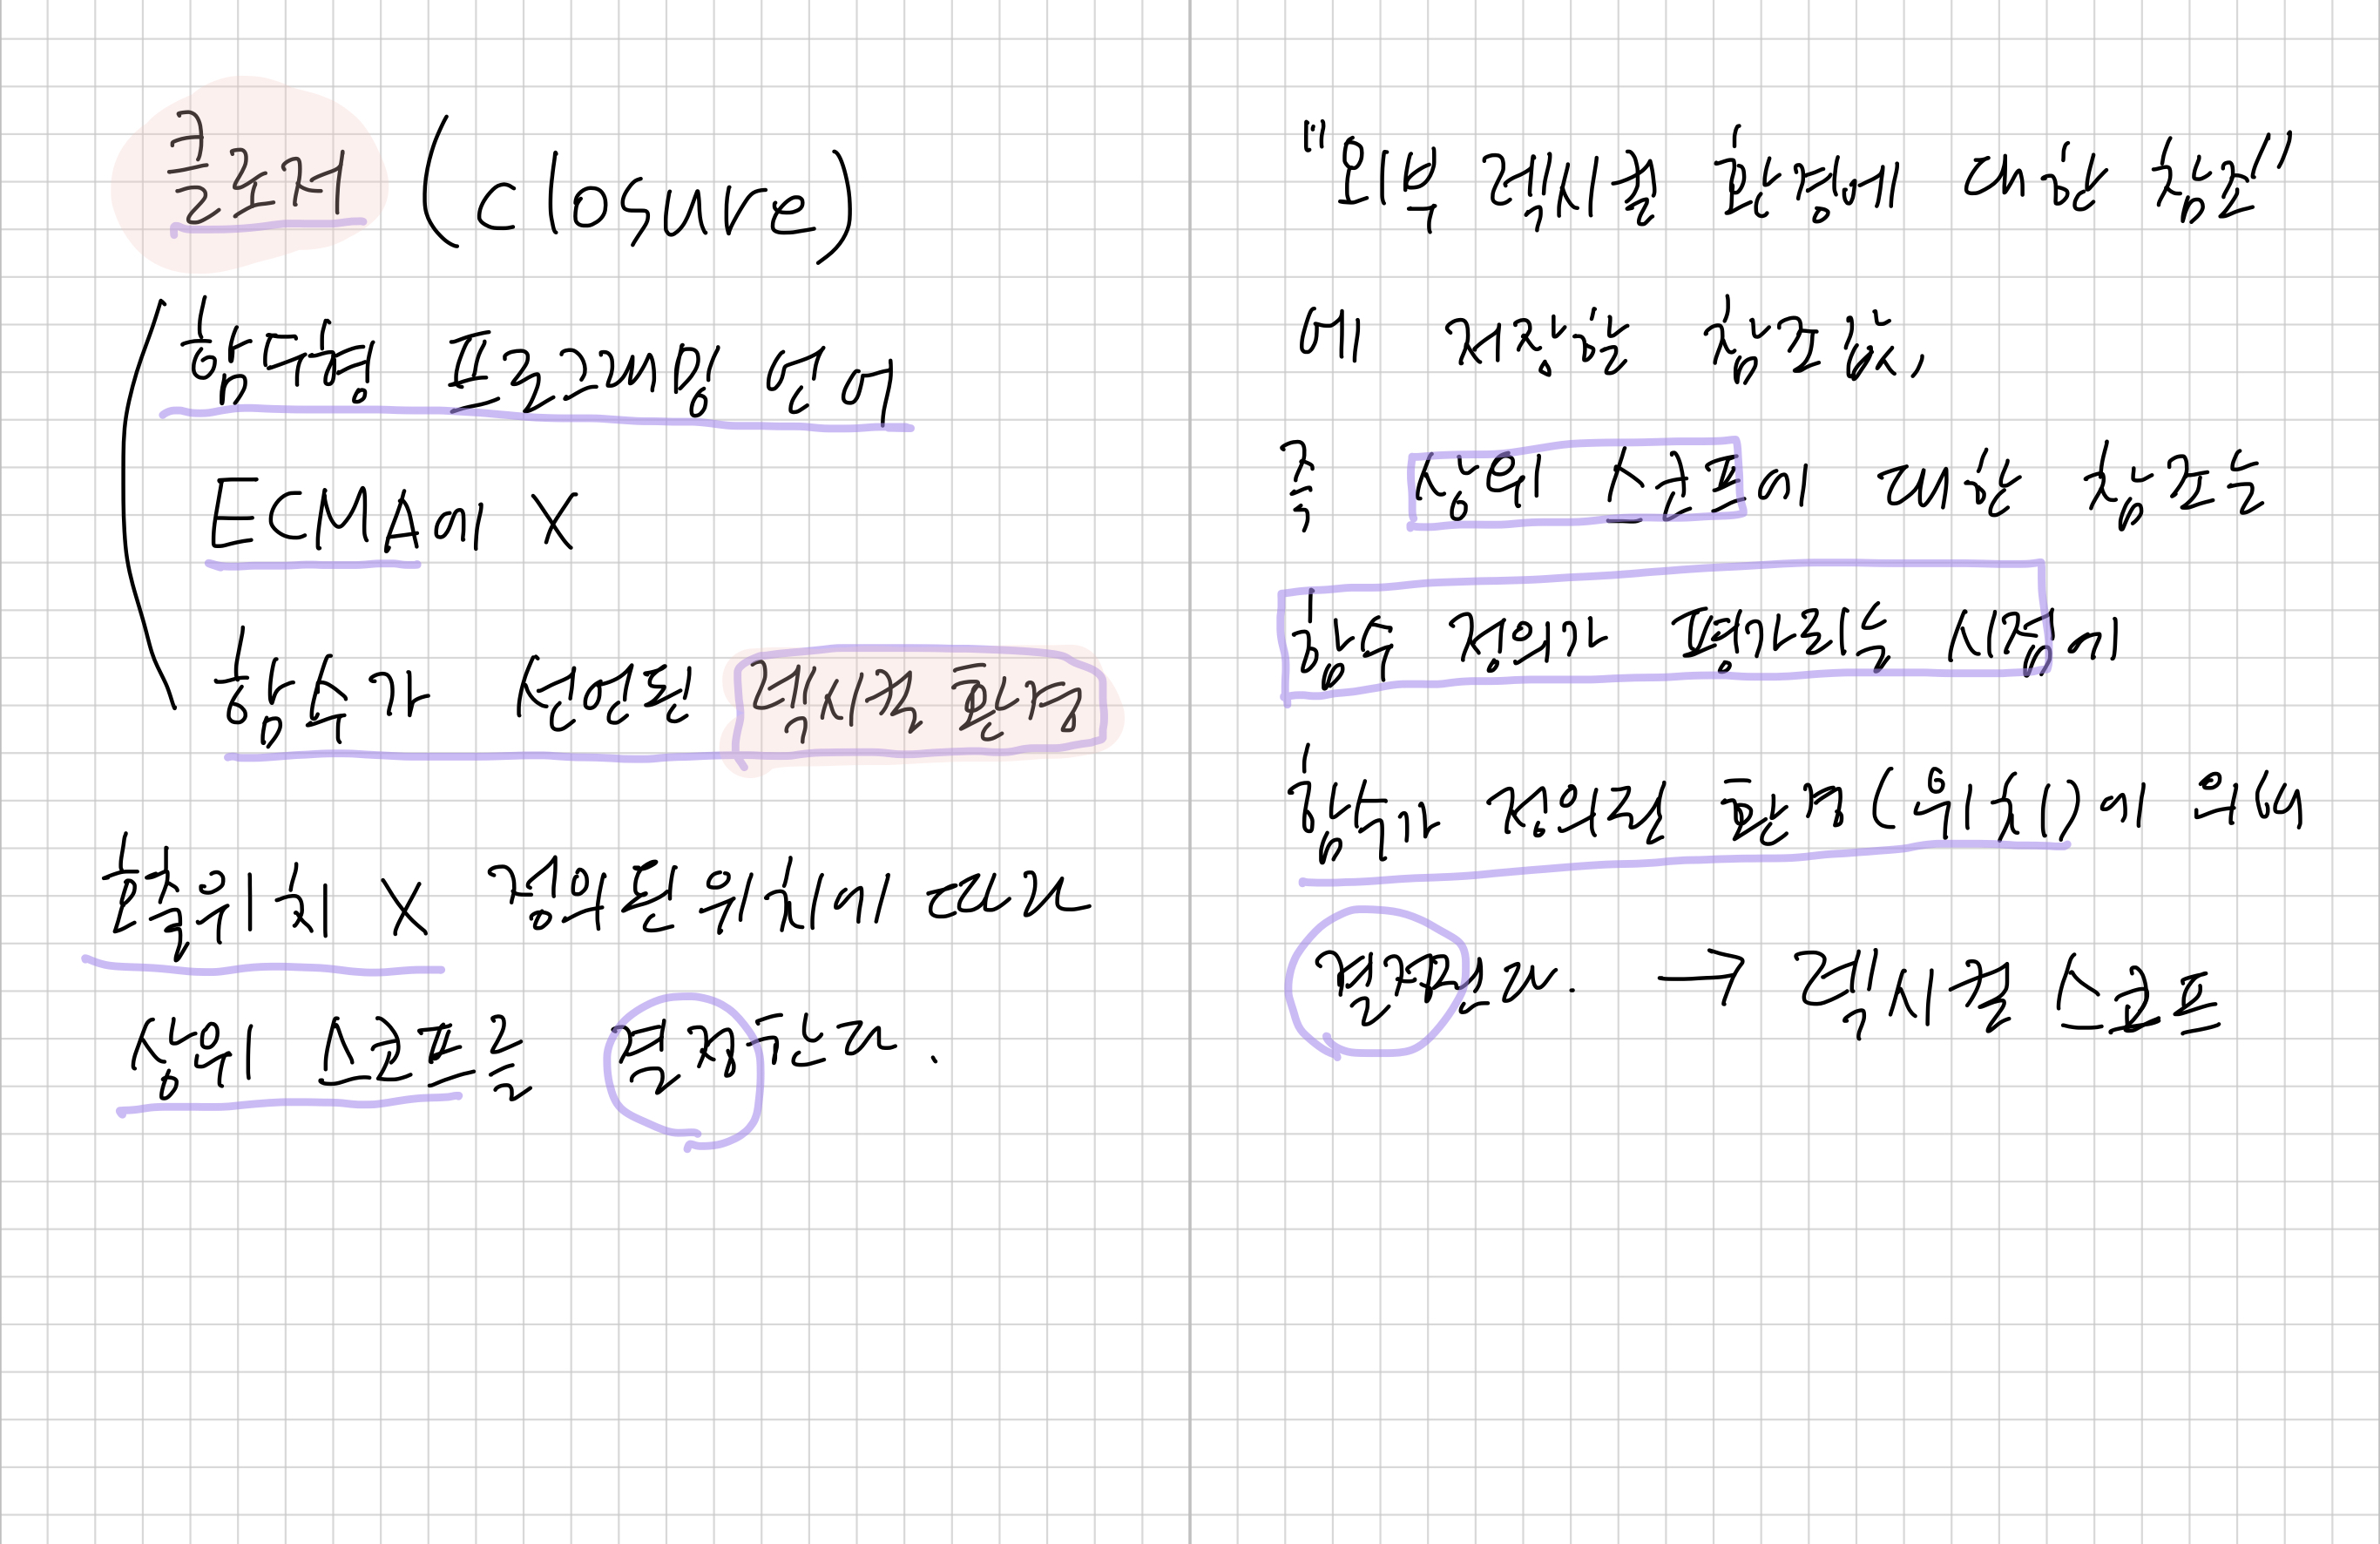 클로저 (closure)
함수형 프로그래밍 언어
ECMA에 X
함수가 선언된 렉시컬 환경
호출위치 X 정의된 위치에 따라
상위 스코프를 결정한다.
"외부 렉시컬 환경에 대한 참조"
에 저장할 참조값,
즉 상위 스코프에 대한 참조는
함수 정의가 평가되는 시점에
함수가 정의된 환경(위치)에 의해
결정된다. → 렉시컬 스코프